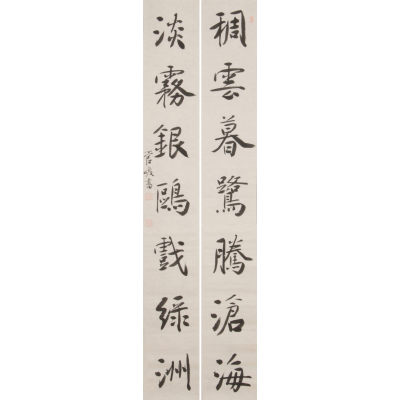 稠雲暮鷺騰滄海
淡霧銀鷗戲綠洲
管峻書